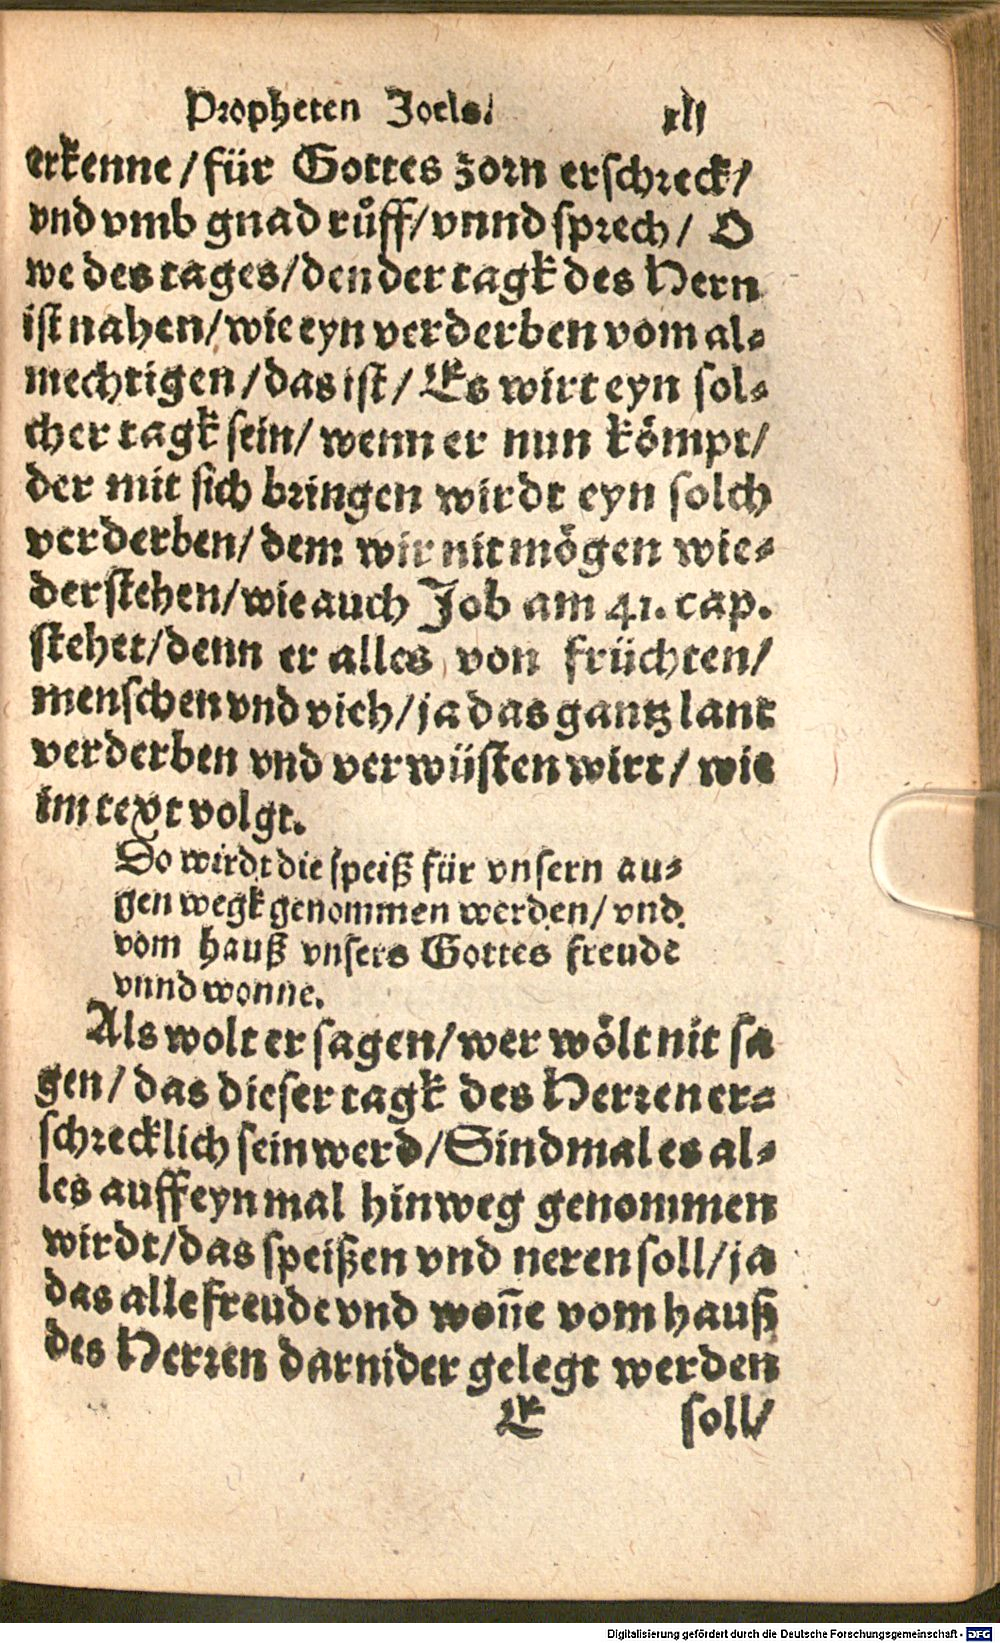 Propheten Joels. xlj
erkenne / für Gottes zorn erschreck /
vnd vmb gnad růff / vnnd sprech / O
we des tages / den der tagk des Hern
ist nahen / wie eyn verderben vom al⸗
mechtigen / das ist / Es wirt eyn sol⸗
cher tagk sein / wenn er nun kömpt /
der mit sich bringen wirdt eyn solch
verderben / dem wir nit mögen wie⸗
derstehen / wie auch Job am 41. cap.
stehet / denn er alles von früchten /
menschen vnd vieh / ja das gantz lant
verderben vnd verwüsten wirt / wie
im text volgt.
Do wirdt die speiß für vnsern au⸗
gen wegk genommen werden / vnd
vom hauß vnsers Gottes freude
vnnd wonne.
Als wolt er sagen / wer wölt nit sa
gen / das dieser tagk des Herren er⸗
schrecklich sein werd / Sindmal es al⸗
les auff eyn mal hinweg genommen
wirdt / das speißen vnd neren soll / ja
das alle freude vnd woñe vom hauß
des Herren darnider gelegt werden
E soll /
Digitalisierung gefördert durch die Deutsche Forschungsgemeinschaft - DFG